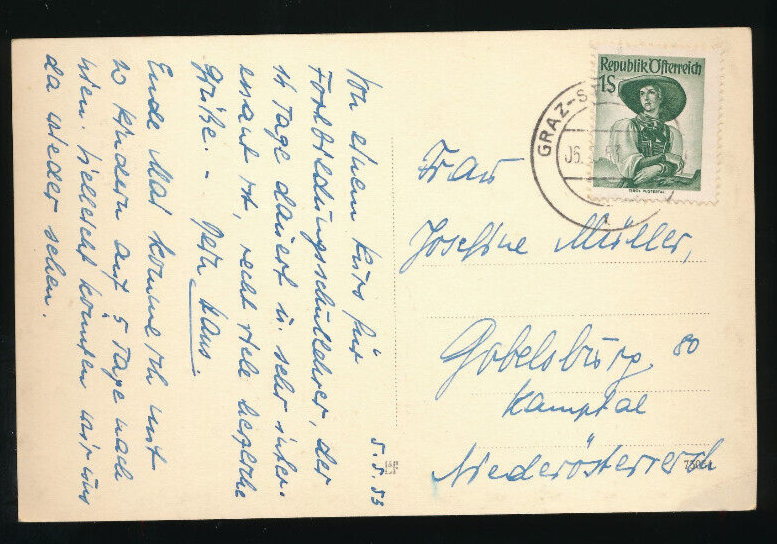 5.5.53
Von einem Kurs für
Fortbildungsschullehrer, der
14 Tage dauert u. sehr inter-
essant ist, recht viele herzliche
Grüße. - Dein Hans.
Ende Mai komme ich mit
20 Kindern auf 5 Tage nach
Wien. Vielleicht könnten wir uns
da wieder sehen.
Republik Österreich
1S
GRAZ-S
06.
53
Frau
Josefine Müller,
Gobelsburg 80
Kamptal
Niederösterreich